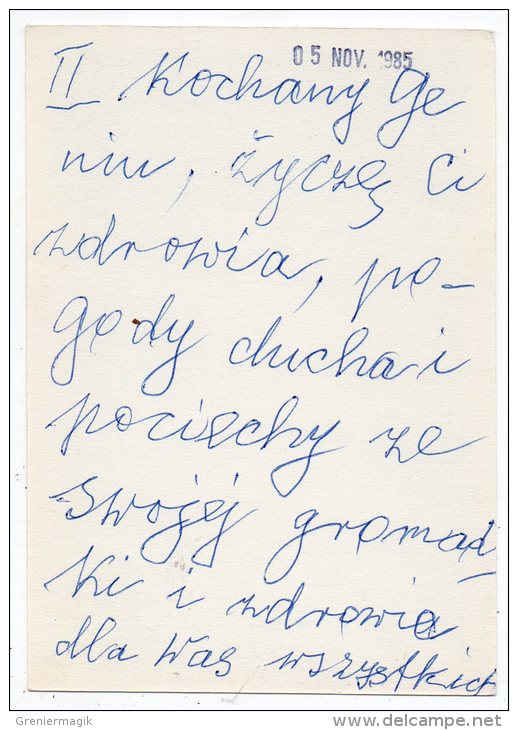 05 NOV. 1985
II Kochany Ge
niu, życzę Ci
zdrowia, po-
gody ducha i
pociechy ze
swojej gromad
ki i zdrowia
dla Was wszystkich
Greniermagik
www.delcampe.net